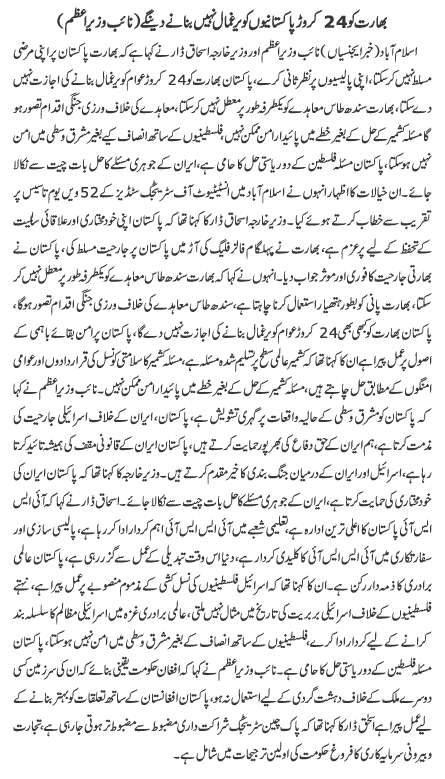 بھارت کو 24 کروڑ پاکستانیوں کو یرغمال نہیں بنانے دینگے (نائب وزیر اعظم)
اسلام آباد (خبر ایجنسیاں) نائب وزیر اعظم اور وزیر خارجہ اسحاق ڈار نے کہا ہے کہ بھارت پاکستان پر اپنی مرضی
مسلط نہیں کر سکتا، اپنی پالیسیوں پر نظر ثانی کرے، پاکستان بھارت کو 24 کروڑ عوام کو یرغمال بنانے کی اجازت نہیں
دے سکتا، بھارت سندھ طاس معاہدے کو یکطرفہ طور پر معطل نہیں کر سکتا، معاہدے کی خلاف ورزی جنگی اقدام تصور ہو
گا مسئلہ کشمیر کے حل کے بغیر خطے میں پائیدار امن ممکن نہیں، فلسطینیوں کے ساتھ انصاف کیے بغیر مشرق وسطی میں امن
نہیں ہو سکتا، پاکستان مسئلہ فلسطین کے دو ریاستی حل کا حامی ہے، ایران کے جوہری مسئلے کا حل بات چیت سے نکالا
جائے۔ ان خیالات کا اظہار انہوں نے اسلام آباد میں انسٹیٹیوٹ آف سٹریٹجک سٹڈیز کے 52 ویں یوم تاسیس پر
تقریب سے خطاب کرتے ہوئے کیا۔ وزیر خارجہ اسحاق ڈار کا کہنا تھا کہ پاکستان اپنی خود مختاری اور علاقائی سالمیت
کے تحفظ کے لیے پر عزم ہے، بھارت نے پہلگام فالز فلیگ کی آڑ میں پاکستان پر جارحیت مسلط کی، پاکستان نے
بھارتی جارحیت کا فوری اور موثر جواب دیا۔ انہوں نے کہا کہ بھارت سندھ طاس معاہدے کو یکطرفہ طور پر معطل نہیں کر
سکتا، بھارت پانی کو بطور ہتھیار استعمال کرنا چاہتا ہے، سندھ طاس معاہدے کی خلاف ورزی جنگی اقدام تصور ہو گا،
پاکستان بھارت کو کبھی بھی 24 کروڑ عوام کو یرغمال بنانے کی اجازت نہیں دے گا، پاکستان پر امن بقائے باہمی کے
اصول پر عمل پیرا ہے ان کا کہنا تھا کہ کشمیر عالمی سطح پر تسلیم شدہ مسئلہ ہے، مسئلہ کشمیر کا سلامتی کونسل کی قراردادوں اور عوامی
امنگوں کے مطابق حل چاہتے ہیں، مسئلہ کشمیر کے حل کے بغیر خطے میں پائیدار امن ممکن نہیں۔ نائب وزیر اعظم نے کہا
کہ پاکستان کو مشرق وسطی کے حالیہ واقعات پر گہری تشویش ہے، پاکستان، ایران کے خلاف اسرائیلی جارحیت کی
مذمت کرتا ہے، ہم ایران کے حق دفاع کی بھرپور حمایت کرتے ہیں، پاکستان ایران کے قانونی مؤقف کی ہمیشہ تائید کرتا
رہا ہے، اسرائیل اور ایران کے درمیان جنگ بندی کا خیر مقدم کرتے ہیں۔ وزیر خارجہ کا کہنا تھا کہ پاکستان ایران کی
خود مختاری کی حمایت کرتا ہے، ایران کے جوہری مسئلے کا حل بات چیت سے نکالا جائے۔ اسحاق ڈار نے کہا کہ آئی ایس
ایس آئی پاکستان کا اعلی ترین ادارہ ہے، تعلیمی شعبے میں آئی ایس ایس آئی اہم کردار ادا کر رہا ہے، پالیسی سازی اور
سفارتکاری میں آئی ایس ایس آئی کا کلیدی کردار ہے، دنیا اس وقت تبدیلی کے عمل سے گزر رہی ہے، پاکستان عالمی
برادری کا ذمہ دار رکن ہے۔ ان کا کہنا تھا کہ اسرائیل فلسطینیوں کی نسل کشی کے مذموم منصوبے پر عمل پیرا ہے، نہتے
فلسطینیوں کے خلاف اسرائیلی بربریت کی تاریخ میں مثال نہیں ملتی، عالمی برادری غزہ میں اسرائیلی مظالم کا سلسلہ بند
کرانے کے لیے کردار ادا کرے، فلسطینیوں کے ساتھ انصاف کے بغیر مشرق وسطی میں امن نہیں ہو سکتا، پاکستان
مسئلہ فلسطین کے دو ریاستی حل کا حامی ہے۔ نائب وزیر اعظم نے کہا کہ افغان حکومت یقینی بنائے کہ ان کی سرزمین کسی
دوسرے ملک کے خلاف دہشت گردی کے لیے استعمال نہ ہو، پاکستان افغانستان کے ساتھ تعلقات کو بہتر بنانے کے
لیے عمل پیرا ہے اسحٰق ڈار کا کہنا تھا کہ پاک چین سٹریٹجک شراکت داری مضبوط سے مضبوط تر ہوتی جا رہی ہے، تجارت
و بیرونی سرمایہ کاری کا فروغ حکومت کی اولین ترجیحات میں شامل ہے۔